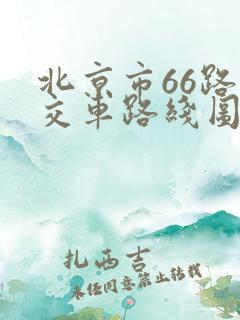 北京市66路
交车路线图
扎西吉
未经同意禁止转载